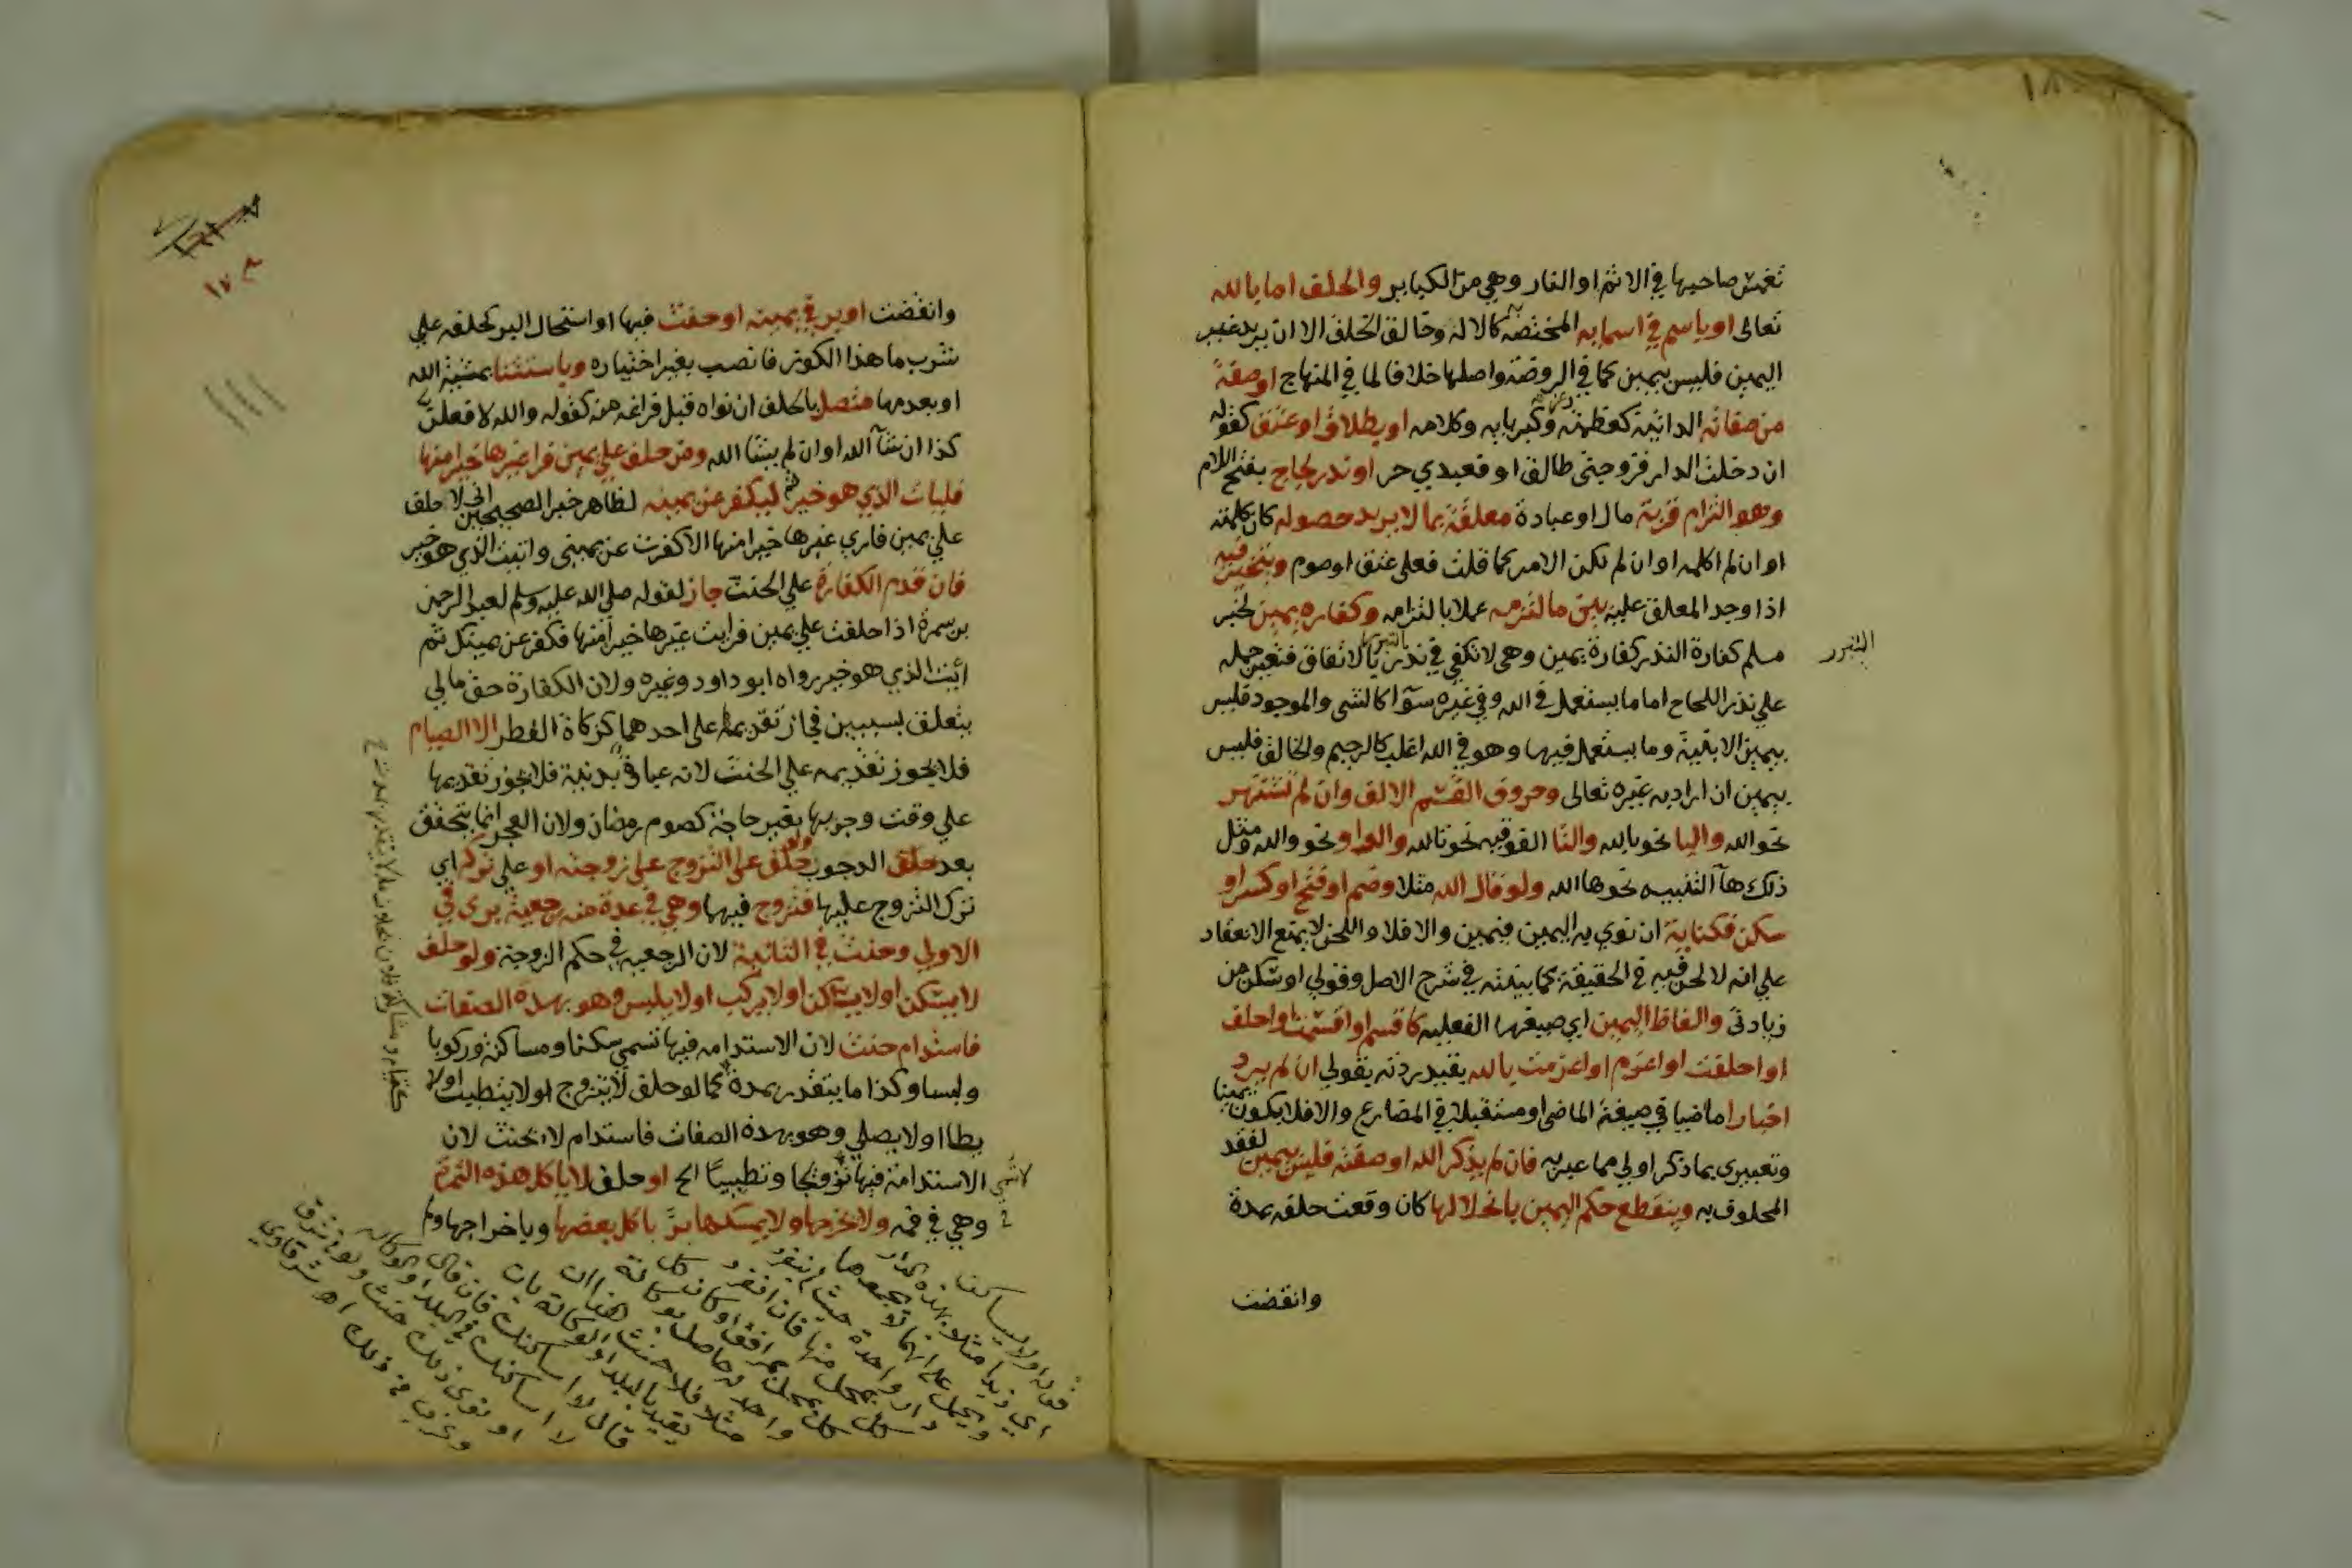 تغمس صاحبها في الاثم او النار وهي من الكباير والحلف اما بالله
تعالى او باسم في اسمايه المختصة به كالاله وخالق الخلف الا ان يريد غير
اليمين فليس بيمين كما في الروضة واصلها خلافا لما في المنهاج او صفة
من صفاته الذاتية كعظمته وعزته وكبريايه وكلامه او بطلاق او عتق كقوله
ان دخلت الدار فزوجتي طالق او فعبدي حر او نذر لجاج بفتح اللام
وهو التزام قربة مال او عبادة معلقة بما لا يريد حصوله كان كلمته
او ان لم اكلمه او ان لم يكن الامر كما قلت فعلي عتق او صوم ويتخير فيه
اذا وجد المعلق عليه بين ما التزمه عملا بالتزامه وكفارة يمين لخبر
مسلم كفارة النذر كفارة يمين وهي لا تكفي في نذر التبرر بالاتفاق فتعين حمله
التبرر
علي نذر اللجاج اما ما يستعمل في الله وفي غيره سوآ كالشى والموجود فليس
بيمين الا بنية وما يستعمل فيهما وهو في الله اغلب كالرحيم والخالق فليس
بيمين ان اراد به غيره تعالى وحروف القسم الالف وان لم تشتهر
نحو الله والبا نحو بالله والتا الفوقيه نحو تالله والواو نحو والله ومثل
ذلك هآ التنبيه نحو ها الله ولو قال الله مثلا وضم او فتح او كسر او
سكن فكناية ان نوي به اليمين فيمين والا فلا واللحن لا يمنع الانعقاد
علي انه لا لحن فيه في الحقيقة كما بينته في شرح الاصل وقولي او سكن من
زيادتى والفاظ اليمين اي صيغها الفعليه كاقسم او اقسمت واحلف
او احلفت او اعزم او اعزمت بالله بقيد زدته بقولي ان لم يرد
اخبارا ماضيا في صيغة الماضى او مستقبلا في المضارع والا فلا يكون يمينا
وتعبيري بما ذكر اولي مما عبر به فان لم يذكر الله او صفته فليس بيمين لفقد
المحلوف به وينقطع حكم اليمين بانحلالها كان وقعت حلفه بمدة
وانقضت
وانقضت او بر في يمينه او حنث فيها او استحال البر كحلفه علي
شرب ما هذا الكوز فانصب بغير اختياره وباستثنا بمشيئة الله
او بعدمها متصل بالحلف ان نواه قبل فراغه منه كقوله والله لافعلن
كذا ان شآ الله او ان لم يشا الله ومن حلف علي يمين فرا غيرها خيرا منها
فليات الذي هو خير ثم ليكفر عن يمينه لظاهر خبر الصحيحين اني لا حلف
علي يمين فاري غيرها خيرا منها الا كفرت عن يميني واتيت الذي هو خير
فان قدم الكفارة علي الحنث جاز لقوله صلي الله عليه وسلم لعبد الرحمن
بن سمرة اذا حلفت علي يمين فرايت غيرها خيرا منها فكفر عن يمينك ثم
ائيت الذي هو خير رواه ابو داود وغيره ولان الكفارة حق مالي
يتعلق بسببين فجاز تقديمه على احدهما كزكاة الفطر الا الصيام
فلا يجوز تقديمه علي الحنث لانه عبادة بدنية فلا يجوز تقديمها
علي وقت وجوبها بغير حاجة كصوم رمضان ولان العجز انما يتحقق
بعد الوجوب ولو حلف على التزوج على زوجته او علي تركه اي
ترك التزوج عليها فتزوج فيهما وهي في عدة منه رجعية بري في
الاولي وحنث في الثانية لان الرجعيه في حكم الزوجة ولو حلف
لا يسكن او لا يساكن او لا يركب او لا يلبس وهو بهذه الصفات
فاستدام حنث لان الاستدامه فيها تسمي سكنا ومساكنة وركوبا
ولبسا وكذا ما يتقدر بمدة كما لو حلف لا يتزوج او لا يتطيب او لا
يطا او لا يصلي وهو بهذه الصفات فاستدام لا يحنث لان
الاستدامة فيها لا تسمي تزوجا وتطيبا الخ او حلف لا ياكل هذه التمرة
وهي في فمه ولا يخرجها ولا يمسكها بر باكل بعضها وباخراجها ولم
قوله او لا يساكن
اي زيدا مثلا بهذه الدار
ويحمل على انهما لا تجمعهما
دار واحدة حيث لم ينفرد
كل بمحل منها فان انفرد كل
كل بمحل بمرافقه او كان
واحد له حاصل بوكالة
مثلا فلا حنث
يقيد بالبلد او الوكالة بان
قال لا اساكنك فان قال
لا اساكنك في البلد او الوكاله
او نوى ذلك حنث ولو في شرق
وغرب في ذلك اه شرقاوي